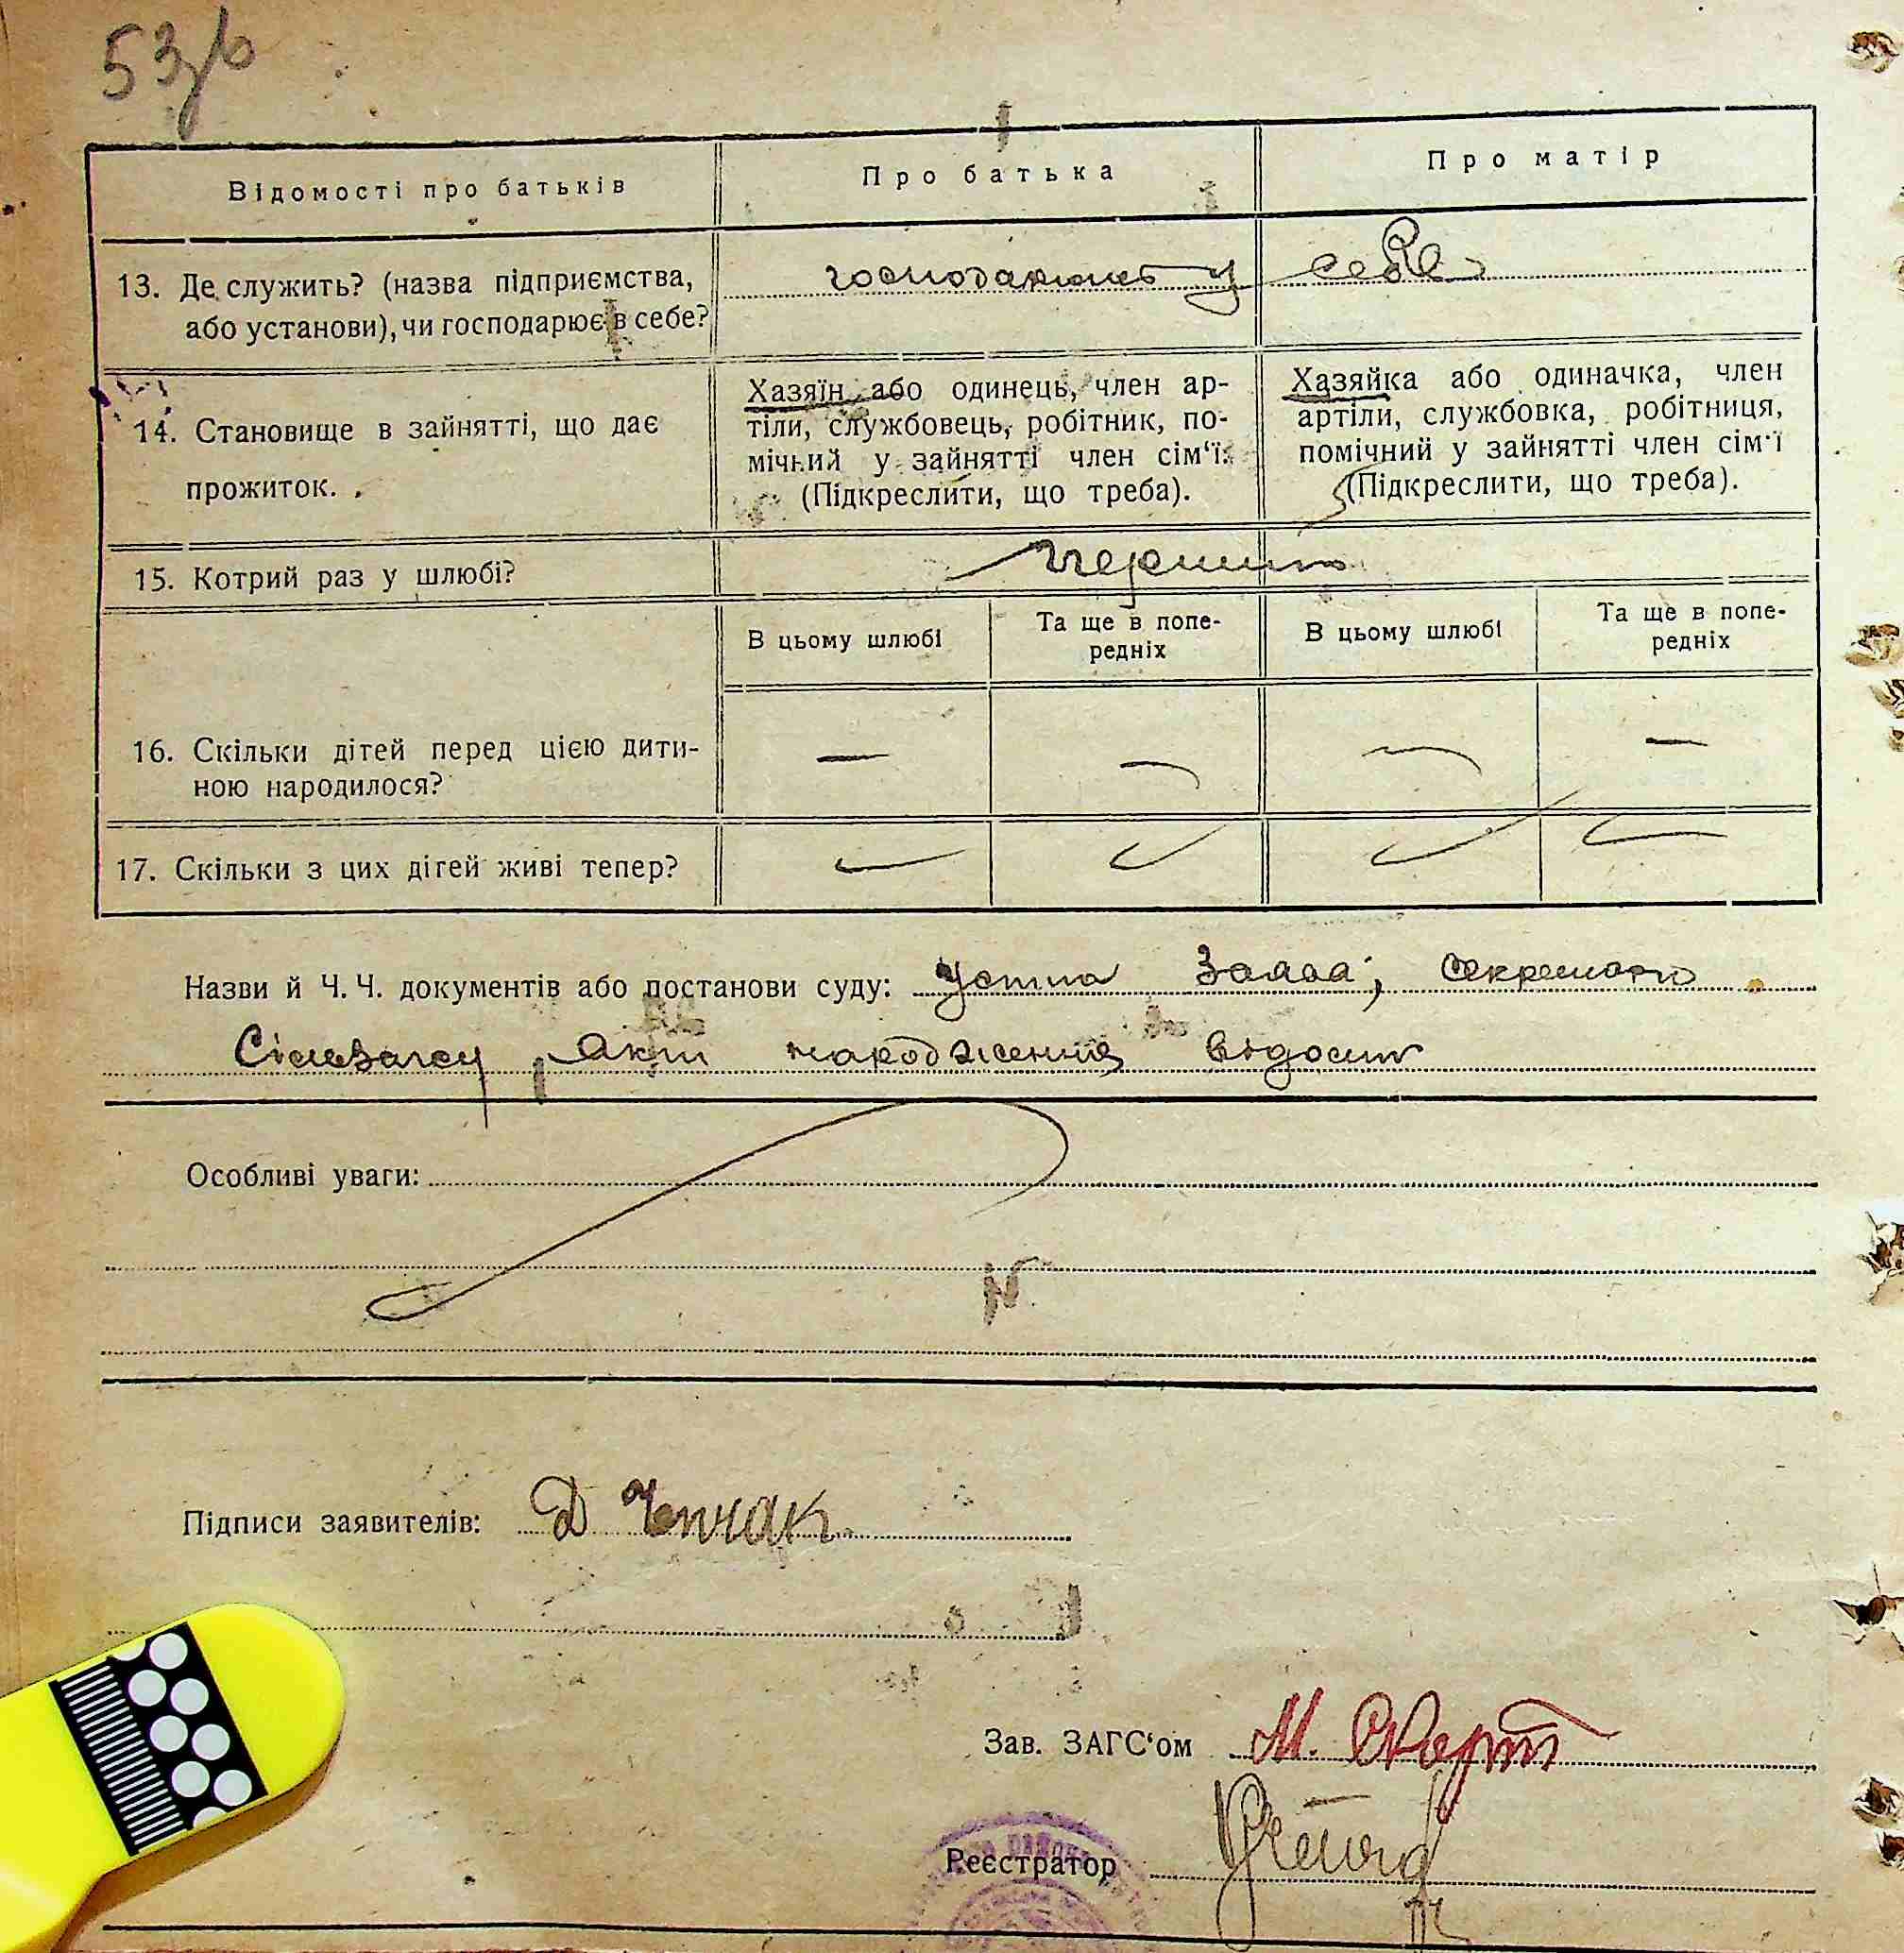 53
Відомості про батьків
Про батька
Про матір
13. Де служить? (назва підприємства,
або установи), чи господарює в себе?
господарюють у себе
14. Становище в зайнятті, що дає
прожиток.
Хазяїн або одинець, член ар-
тіли, службовець, робітник, по-
мічний у зайнятті член сім‘ї.
(Підкреслити, що треба).
Хазяйка або одиначка, член
артіли, службовка, робітниця,
помічний у зайнятті член сім‘ї
(Підкреслити, що треба).
15. Котрий раз у шлюбі?
В цьому шлюбі
Та ще в попе-
редніх
В цьому шлюбі
Та ще в попе-
редніх
16. Скільки дітей перед цією дити-
ною народилося?
— — — —
17. Скільки з цих дітей живі тепер?
— — — —
Назви й Ч. Ч. документів або постанови суду: Устна Заява, секретарю
Сільзагсу, акт народження
Особливі уваги:
Підписи заявителів: Д
Зав. ЗАГС‘ом М.
Реєстратор